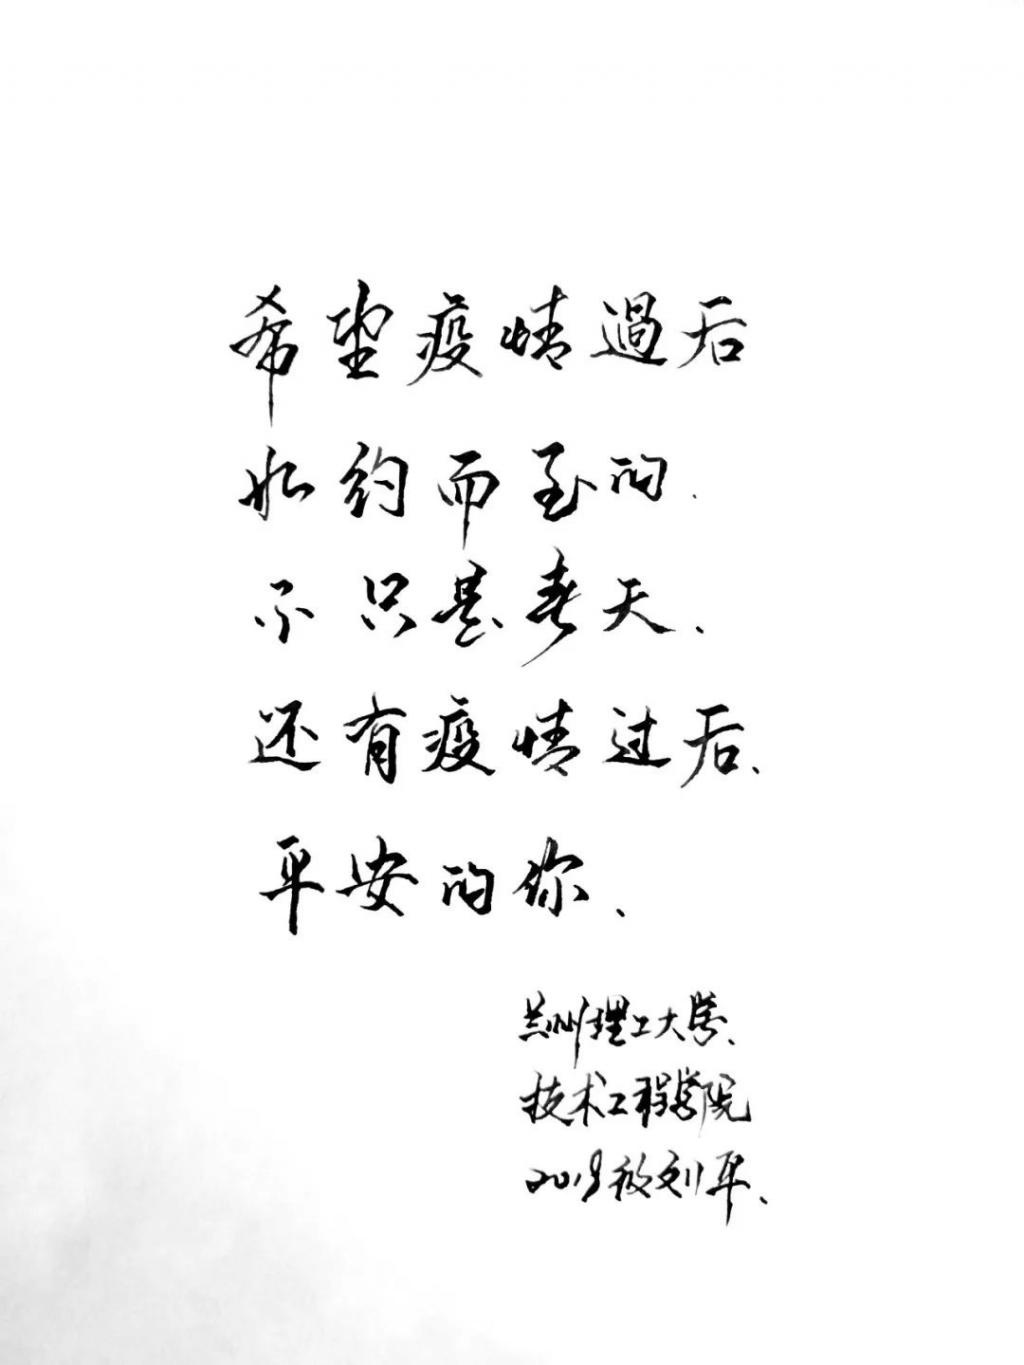 希望疫情過后
如约而至的.
不只是春天.
还有疫情过后、
平安的你、
兰州理工大学、
技术工程学院
2019级刘平、